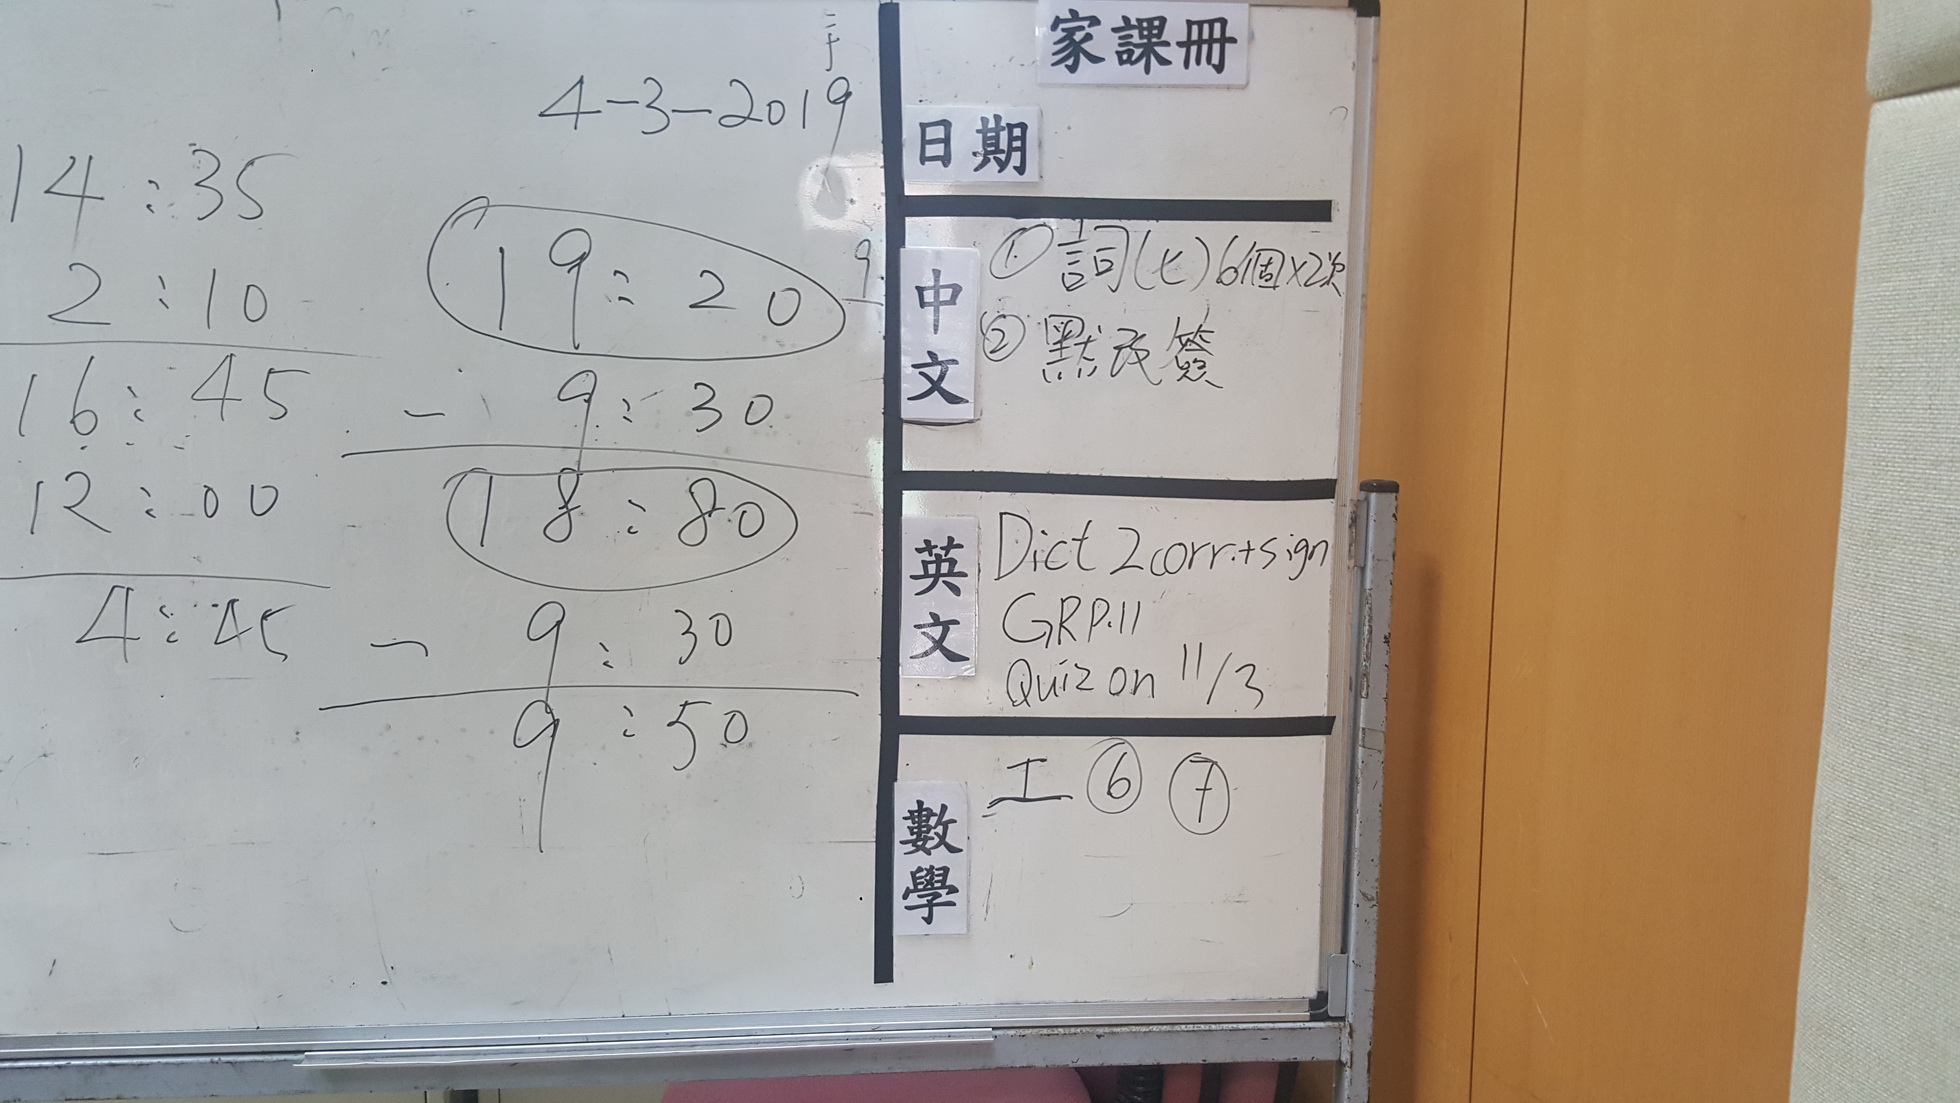 4-3-2019
14:35
2:10
16:45
12:00
4:45
19:20
- 9:30
18:80
- 9:30
9:50
家課冊
日期
中文
① 詞(七)6個x2次
② 默改簽
英文
Dict 2 corr.+sign
GRP.11
Quiz on 11/3
數學
工 ⑥ ⑦